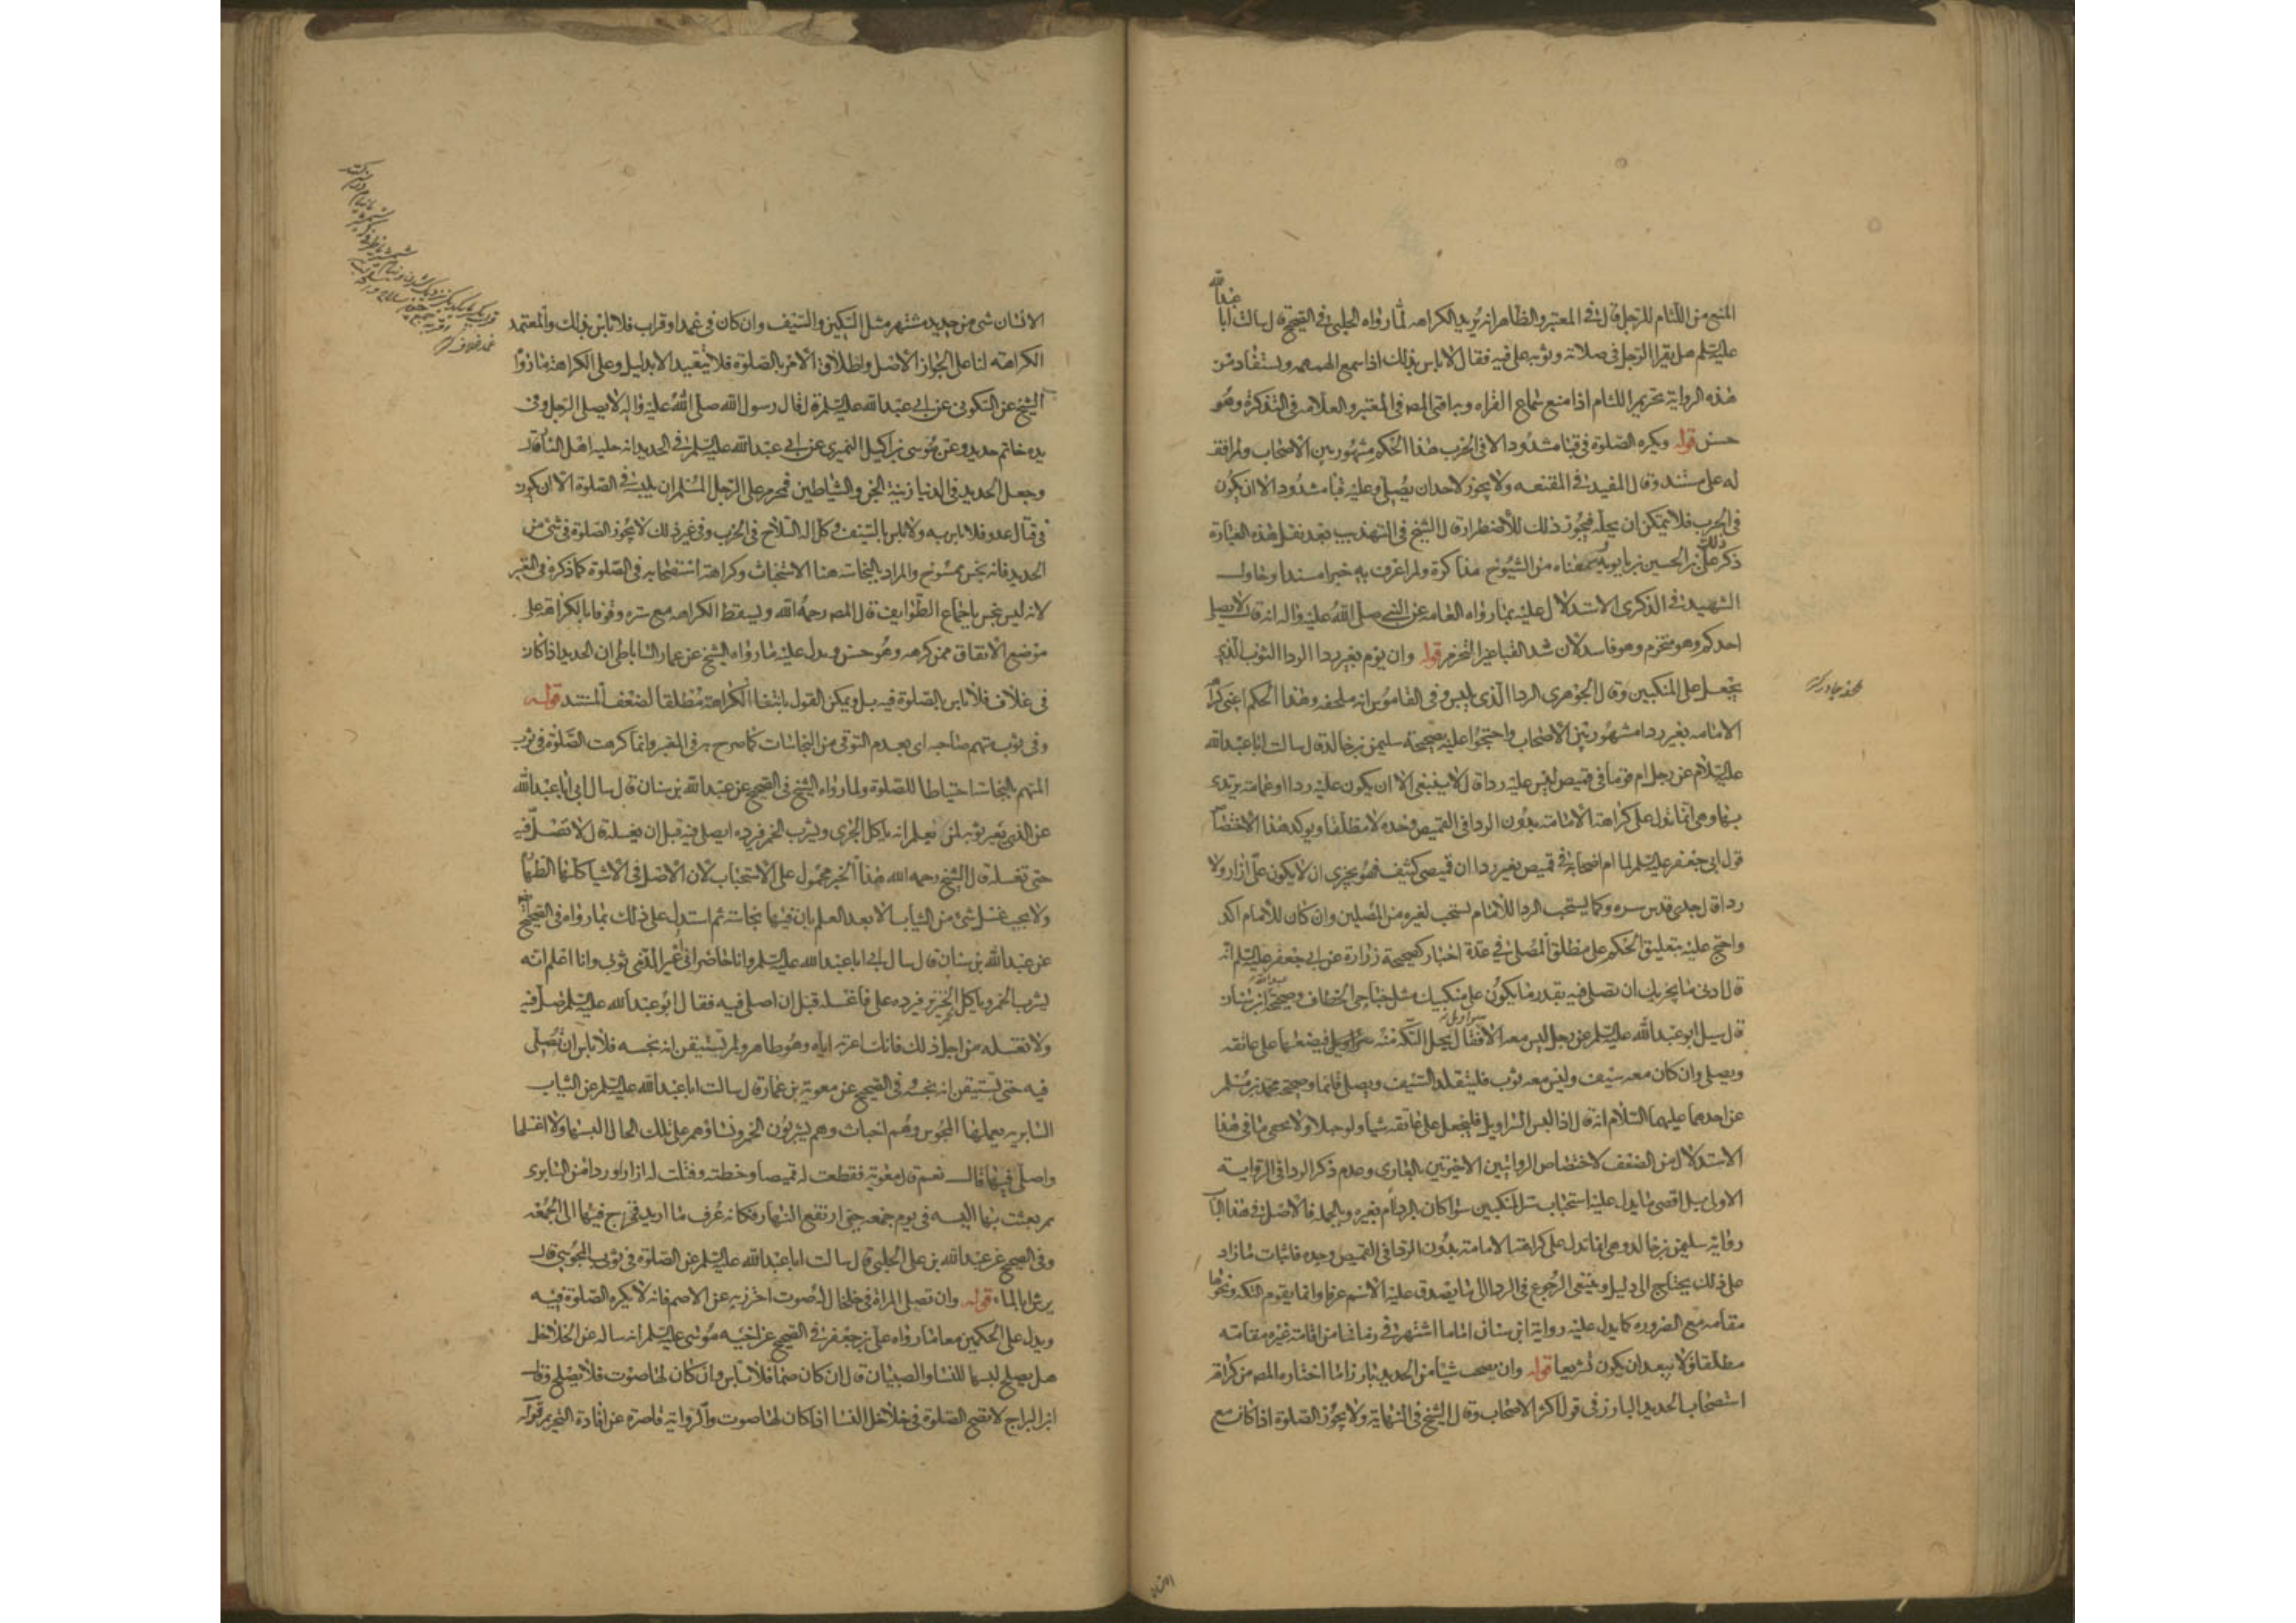 المنع من اللثام للرجل قال في المعتبر والظاهر انه يريد الكراهه لما رواه الحلبي في الصحيح قال سالت ابا عبد الله
عليه السلم هل يقرا الرجل في صلاته وثوبه على فيه فقال لا باس بذلك اذا سمع الهمهمه ويستفاد من
هذه الرواية تحريم اللثام اذا منع سماع القراه وبه افتى المصه في المعتبر والعلامه في التذكرة وهو
حسن قوله ويكره الصلوة في قبا مشدود الا في الحرب هذا الحكم مشهور بين الاصحاب ولم اقف
له على مستند وقال المفيد في المقنعه ولا يجوز لاحد ان يصلي وعليه قبا مشدود الا ان يكون
في الحرب فلا يتمكن ان يحله فيجوز ذلك للاضطرار قال الشيخ في التهذيب بعد نقل هذه العبارة
ذكر ذلك علي بن الحسين بن بابويه وسمعناه من الشيوخ مذاكرة ولم اعرف به خبرا مسندا وحاول
الشهيد في الذكرى الاستدلال عليه بما رواه العامه عن النبي صلى الله عليه واله انه قال لا يصلي
احدكم وهو متحزم وهو فاسد لان شد القبا غير التحزم قوله وان يؤم بغير ردا الردا الثوب الذي
يجعل على المنكبين وقال الجوهري الردا الذي يلبس وفي القاموس انه ملحفه وهذا الحكم اعني كراهة
الامامه بغير ردا مشهور بين الاصحاب واحتجوا عليه بصحيحة سليمن بن خالد قال سالت ابا عبد الله
عليه السلام عن رجل ام قوما في قميص ليس عليه ردا قال لا ينبغي الا ان يكون عليه ردا او عمامة يرتدي
بها وهي انما تدل على كراهة الامامة بدون الردا في القميص وحده لا مطلقا ويوكد هذا الاختصاص
قول ابي جعفر عليه السلم لما ام اصحابه في قميص بغير ردا ان قميصي كثيف فهو يجزي ان لا يكون علي ازار ولا
ردا قال جدي قدس سره وكما يستحب الردا للامام يستحب لغيره من المصلين وان كان للامام اكد
واحتج عليه بتعليق الحكم على مطلق المصلي في عدة اخبار كصحيحة زرارة عن ابي جعفر عليه السلم انه
قال ادنى ما يجزيك ان تصلي فيه بقدر ما يكون على منكبيك مثل جناحي الخطاف وصحيحة عبد الله بن سنان
قال سيل ابو عبد الله عليه السلم عن رجل ليس معه الا سراويل قال يحل التكه منه فيضعها على عاتقه
ويصلي وان كان معه سيف وليس معه ثوب فليتقلد السيف ويصلي قائما وصحيحة محمد بن مسلم
عن احدهما عليهما السلام انه قال اذا لبس السراويل فليجعل على عاتقه شيا ولو حبلا ولا يخفى ما في هذا
الاستدلال من الضعف لاختصاص الروايتين الاخيرتين بالعاري وعدم ذكر الردا في الرواية
الاولى بل اقصى ما يدل عليه استحباب ستر المنكبين سوا كان بالردا ام بغيره وبالجمله فالاصل في هذا الباب
رواية سليمن بن خالد وهي انما تدل على كراهة الامامة بدون الردا في القميص وحده فاثبات ما زاد
على ذلك يحتاج الى دليل وينبغي الرجوع في الردا الى ما يصدق عليه الاسم عرفا وانما يقوم التكه ونحوها
مقامه مع الضروره كما يدل عليه رواية ابن سنان اما ما اشتهر في زماننا من اقامة غيره مقامه
مطلقا فلا يبعد ان يكون تشريعا قوله وان يصحب شيا من الحديد بارزا ما اختاره المصه من كراهة
استصحاب الحديد البارز في قول اكثر الاصحاب وقال الشيخ في النهاية ولا يجوز الصلوة اذا كان مع
الانسان
الانسان شي من حديد مشتهر مثل السكين والسيف وان كان في غمد او قراب فلا باس بذلك والمعتمد
الكراهة لنا على الجواز الاصل واطلاق الامر بالصلوة فلا يتقيد الا بدليل وعلى الكراهة ما رواه
الشيخ عن السكوني عن ابي عبد الله عليه السلم قال قال رسول الله صلى الله عليه واله لا يصلي الرجل وفي
يده خاتم حديد وعن موسى بن اكيل النميري عن ابي عبد الله عليه السلم في الحديد انه حلية اهل النار قال
وجعل الحديد في الدنيا زينة الجن والشياطين فحرم على الرجل المسلم ان يلبسه في الصلوة الا ان يكون
في قتال عدو فلا باس به ولا باس بالسيف وكل اله السلاح في الحرب وفي غير ذلك لا يجوز الصلوة في شي من
الحديد فانه نجس ممسوخ والمراد بالنجاسة هنا الاستخباث وكراهة استصحابه في الصلوة كما ذكره في المعتبر
لانه ليس بنجس باجماع الطوايف قال المصه رحمه الله ويسقط الكراهه مع ستره وقوفا بالكراهة على
موضع الاتفاق ممن كرهه وهو حسن ويدل عليه ما رواه الشيخ عن عمار الساباطي ان الحديد اذا كان
في غلاف فلا باس بالصلوة فيه بل ويمكن القول بانتفا الكراهة مطلقا لضعف المستند قوله
وفي ثوب يتهم صاحبه اي بعدم التوقي من النجاسات كما صرح به في المعتبر وانما كرهت الصلوة في ثوب
المتهم بالنجاسة احتياطا للصلوة ولما رواه الشيخ في الصحيح عن عبد الله بن سنان قال سال ابي ابا عبد الله
عن الذي يعير ثوبه لمن يعلم انه ياكل الجري ويشرب الخمر فيرده ايصلي فيه قبل ان يغسله قال لا تصل فيه
حتى تغسله قال الشيخ رحمه الله هذا الخبر محمول على الاستحباب لان الاصل في الاشيا كلها الطهارة
ولا يجب غسل شي من الثياب الا بعد العلم بان فيها نجاسة ثم استدل على ذلك بما رواه في الصحيح
عن عبد الله بن سنان قال سال ابي ابا عبد الله عليه السلم وانا حاضر اني اعير الذمي ثوبي وانا اعلم انه
يشرب الخمر وياكل لحم الخنزير فيرده علي فاغسله قبل ان اصلي فيه فقال ابو عبد الله عليه السلم صل فيه
ولا تغسله من اجل ذلك فانك اعرته اياه وهو طاهر ولم تستيقن انه نجسه فلا باس ان تصلي
فيه حتى تستيقن انه نجسه وفي الصحيح عن معوية بن عمار قال سالت ابا عبد الله عليه السلم عن الثياب
السابريه يعملها المجوس وهم اخباث وهم يشربون الخمر ونساؤهم على تلك الحال البسها ولا اغسلها
واصلي فيها قال نعم قال معوية فقطعت له قميصا وخطته وفتلت له ازارا وردا من السابري
ثم بعثت بها اليه في يوم جمعه حين ارتفع النهار فكانه عرف ما اريد فخرج فيها الى الجمعه
وفي الصحيح عن عبيد الله بن علي الحلبي قال سالت ابا عبد الله عليه السلم عن الصلوة في ثوب المجوسي قال
يرش بالماء قوله وان تصلي المراة في خلخال له صوت احترز به عن الاصم فانه لا يكره الصلوة فيه
ويدل على الحكمين معا ما رواه علي بن جعفر في الصحيح عن اخيه موسى عليه السلم انه ساله عن الخلاخل
هل يصلح لبسها للنسا والصبيان قال ان كان صما فلا باس وان كان لها صوت فلا يصلح وقال
ابن البراج لا تصح الصلوة في خلاخل النسا اذا كان لها صوت والرواية قاصرة عن افادة التحريم قوله